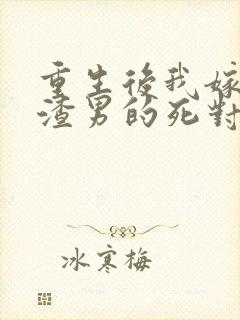 重生後我嫁
渣男的死對
冰寒梅